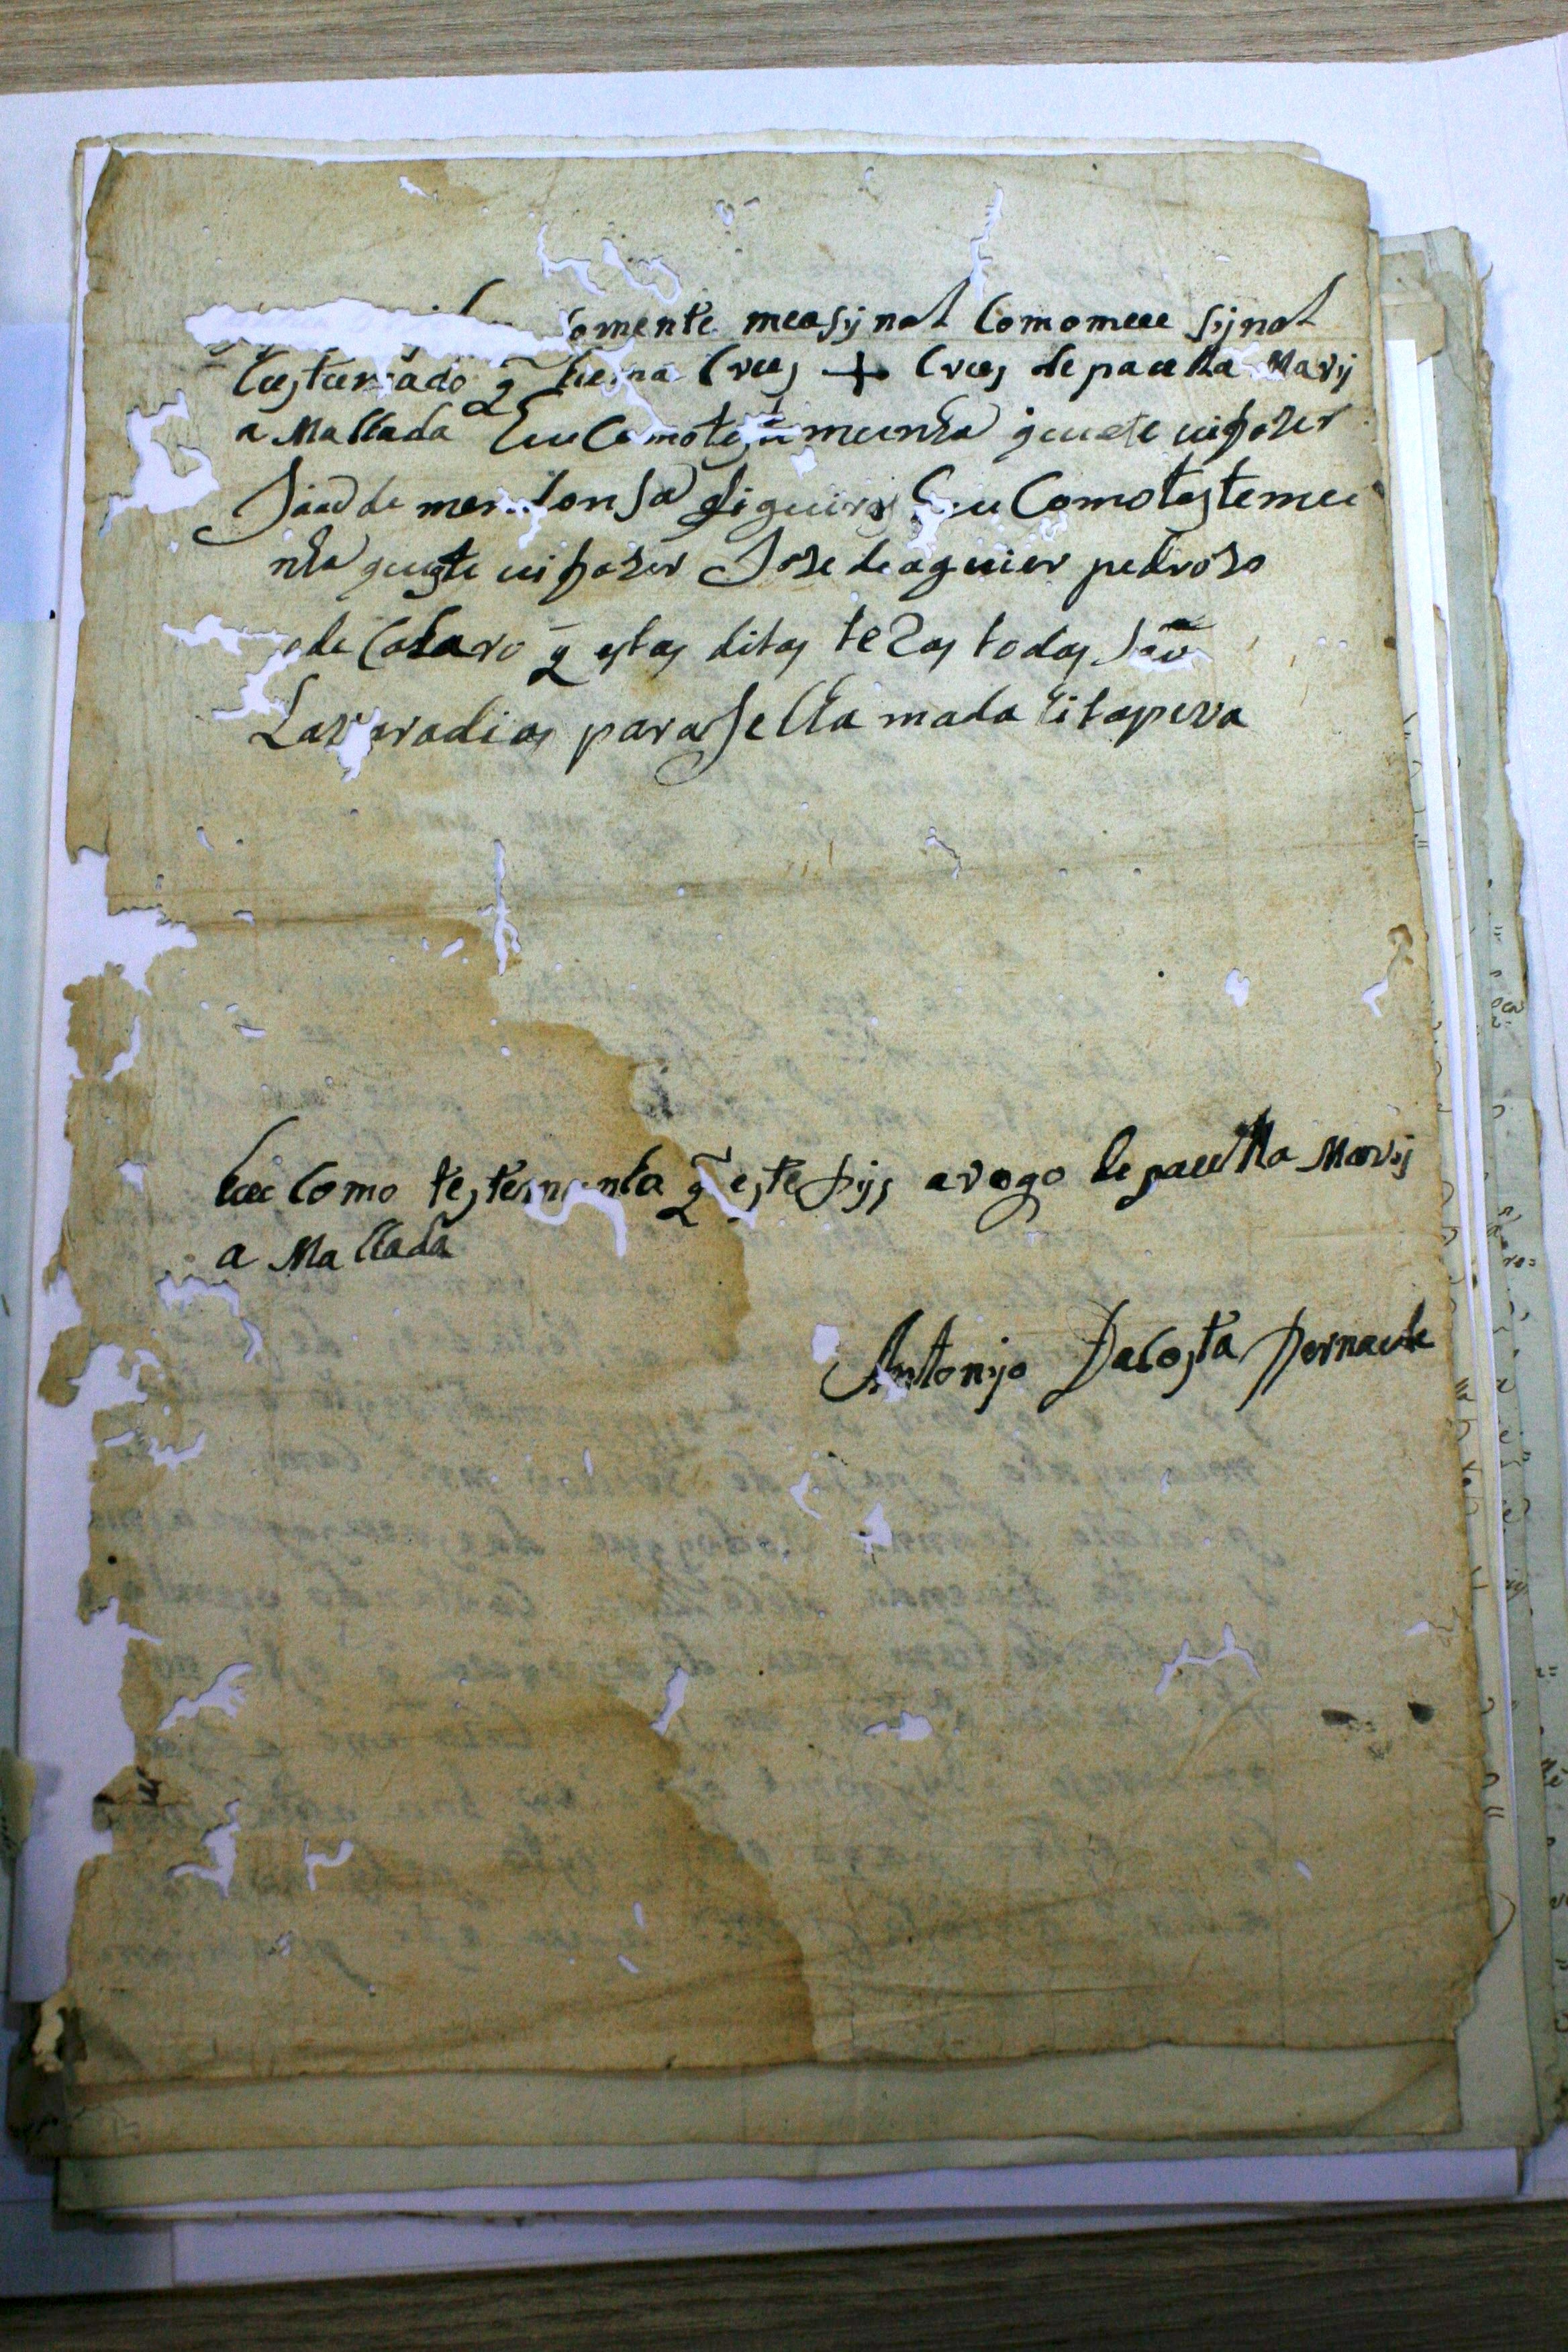 somente measynal Comomeu synal
Custumado q̃ he hũa Crus + Crus de paulla Marij
a Mallada Eu Como testemunha q̃ este vi fazer
João de mendonsa figuira Eu Como testemu
nha q̃ este vi fazer Joze de aguier pedrozo
de Claro q̃ estas ditas terras todas são
Lavradias para sell a mada itapeva
Eu Como testemunha q̃ este fijs a rogo de paulla Marij
a Mallada
Antonijo Da Costa